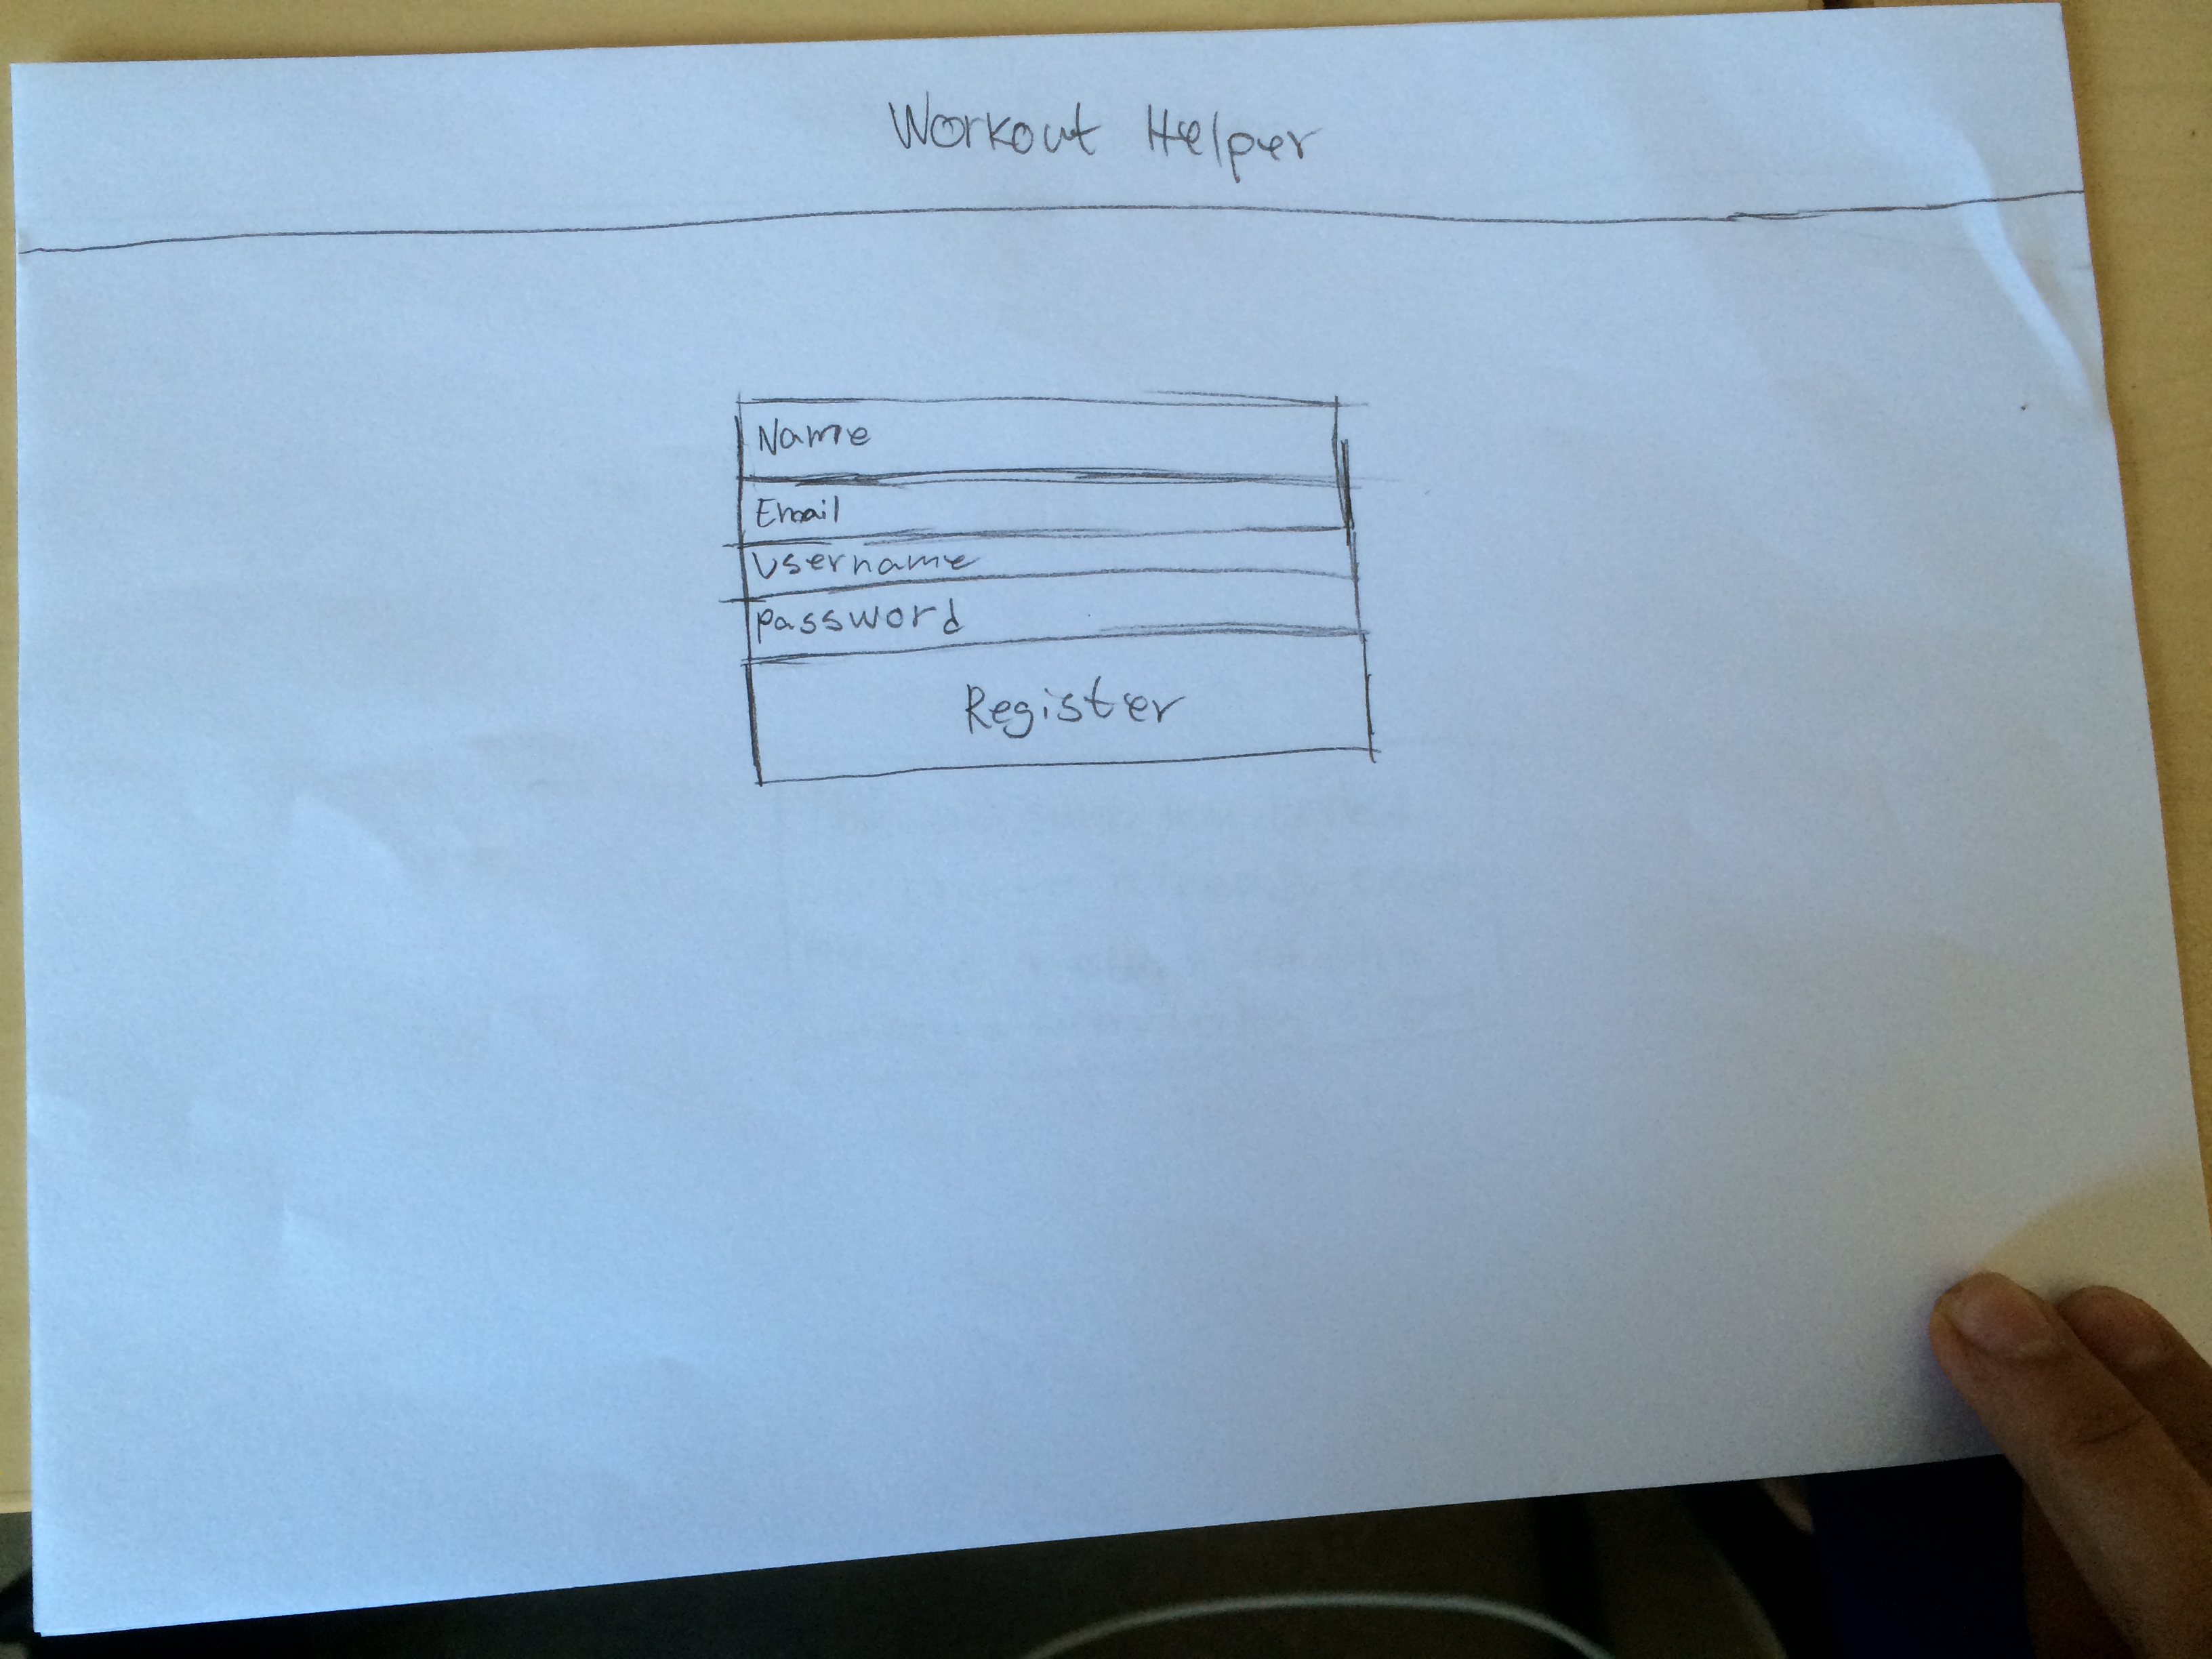 Workout Helper
Name
Email
Username
password
Register